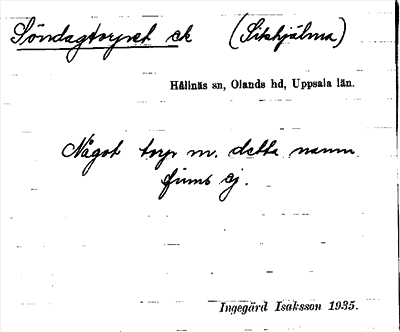 Söndagtorpet ek (Sikhjälma)
Hållnäs sn, Olands hd, Uppsala län.
Något torp m. detta namn
finns ej.
Ingegärd Isaksson 1935.